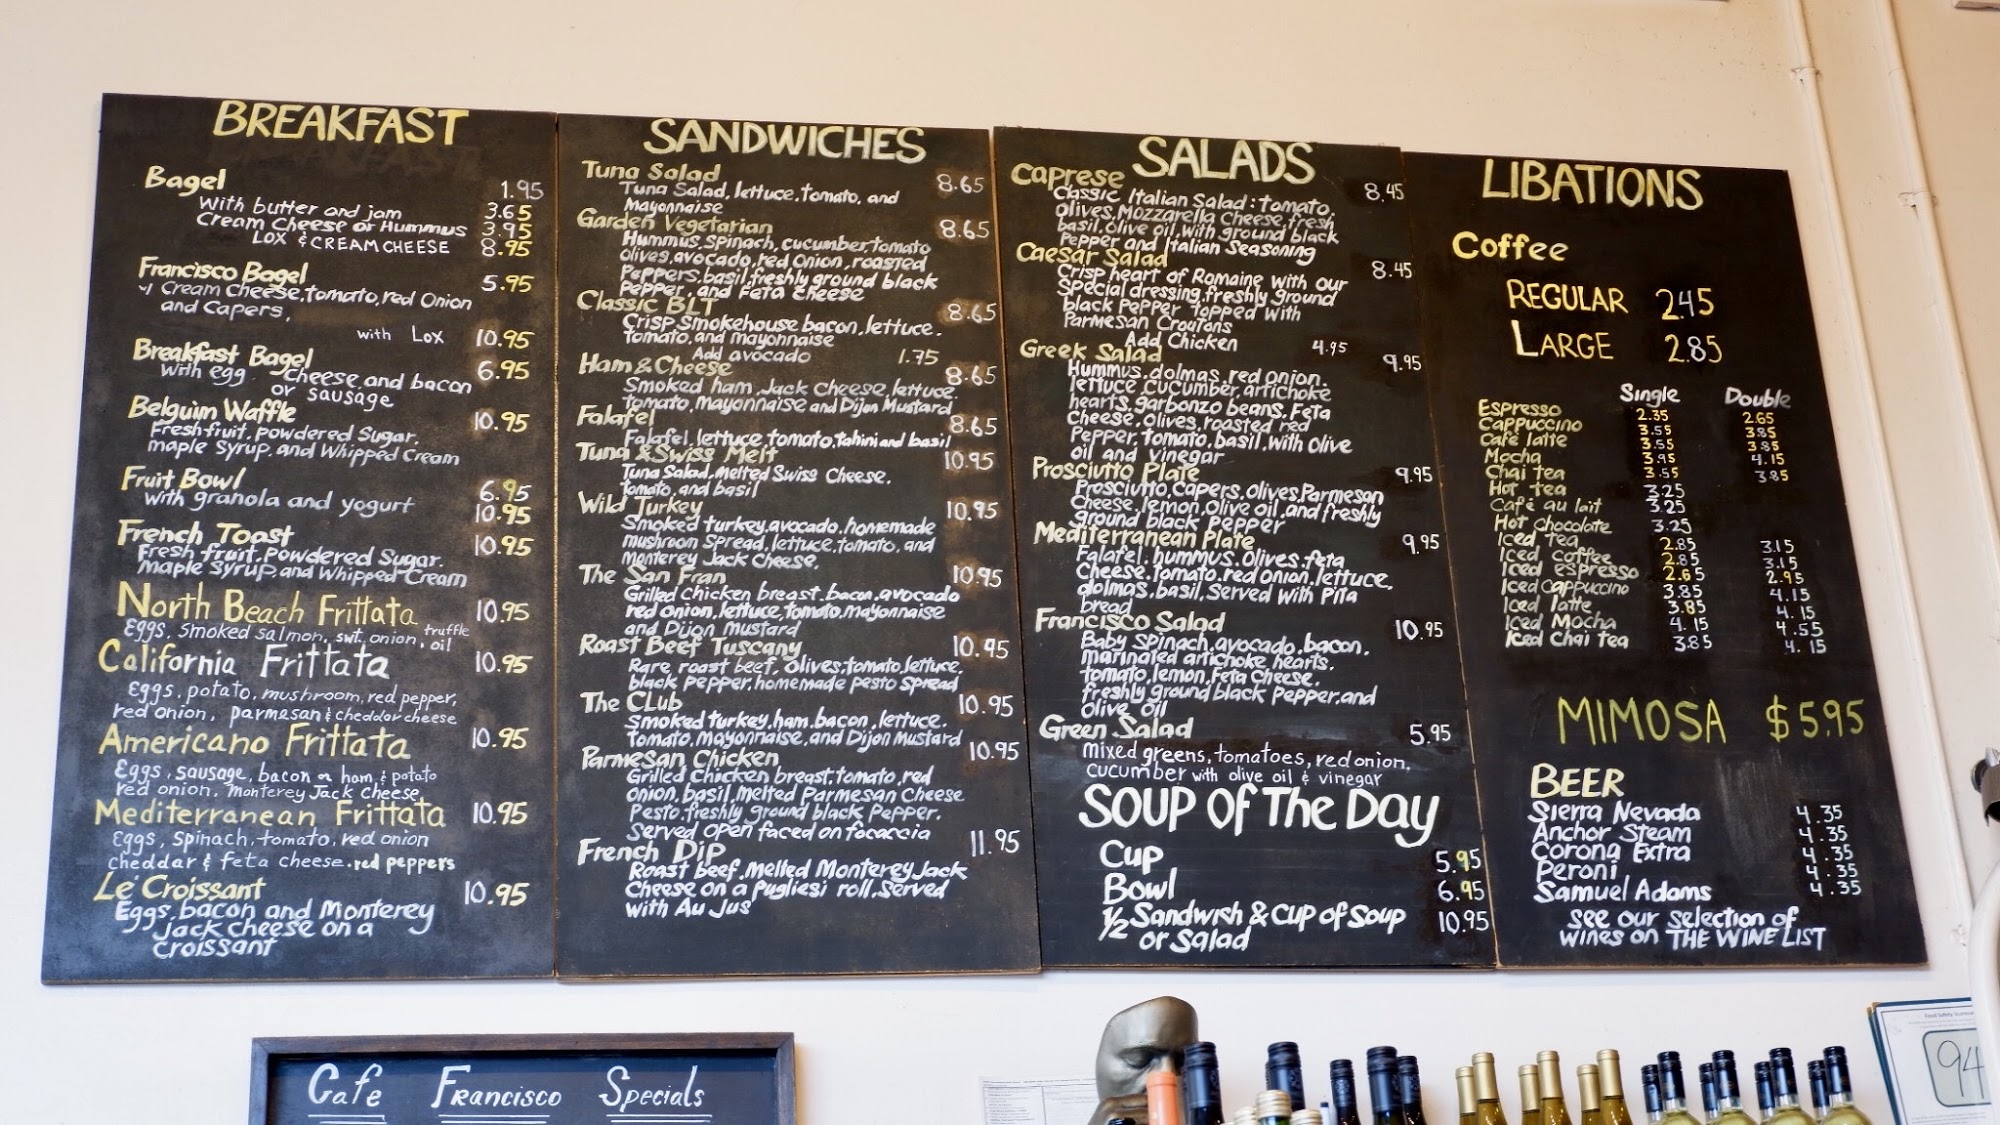 BREAKFAST
Bagel 1.95
With butter and jam 3.65
Cream Cheese or Hummus 3.95
LOX & CREAM CHEESE 8.95
Francisco Bagel 5.95
w/ Cream Cheese, tomato, red Onion
and Capers,
with Lox 10.95
Breakfast Bagel 6.95
with egg cheese and bacon
or sausage
Belguim Waffle 10.95
Fresh fruit, powdered Sugar,
maple syrup, and Whipped Cream
Fruit Bowl 6.95
with granola and yogurt 10.95
French Toast 10.95
Fresh fruit, Powdered Sugar,
Maple Syrup, and Whipped Cream
North Beach Frittata 10.95
Eggs, smoked salmon, swt. onion, truffle oil
California Frittata 10.95
Eggs, potato, mushroom, red pepper,
red onion, parmesan & cheddar cheese
Americano Frittata 10.95
Eggs, sausage, bacon or ham, & potato
red onion, Monterey Jack Cheese
Mediterranean Frittata 10.95
Eggs, spinach, tomato, red onion
cheddar & feta cheese. red peppers
Le' Croissant 10.95
Eggs, bacon and Monterey
Jack cheese on a
croissant
SANDWICHES
Tuna Salad 8.65
Tuna Salad, lettuce, tomato, and
Mayonnaise
Garden Vegetarian 8.65
Hummus, spinach, cucumber, tomato
olives, avocado, red onion, roasted
Peppers, basil, freshly ground black
Pepper, and Feta Cheese
Classic BLT 8.65
Crisp Smokehouse bacon, lettuce,
tomato, and mayonnaise
Add avocado 1.75
Ham & Cheese 8.65
Smoked ham, Jack Cheese, lettuce,
tomato, mayonnaise and Dijon Mustard
Falafel 8.65
Falafel, lettuce, tomato, tahini and basil
Tuna & Swiss Melt 10.95
Tuna Salad, melted Swiss Cheese,
tomato, and basil
Wild Turkey 10.95
Smoked turkey, avocado, homemade
mushroom spread, lettuce, tomato, and
Monterey Jack Cheese,
The San Fran 10.95
Grilled Chicken breast, bacon, avocado
red onion, lettuce, tomato, mayonnaise
and Dijon mustard
Roast Beef Tuscany 10.95
Rare roast beef, olives, tomato, lettuce,
black pepper, homemade pesto spread
The CLub 10.95
Smoked turkey, ham, bacon, lettuce,
tomato, Mayonnaise, and Dijon Mustard
Parmesan Chicken 10.95
Grilled Chicken breast, tomato, red
onion, basil, melted Parmesan Cheese
Pesto, freshly ground black Pepper.
Served open faced on focaccia
French Dip 11.95
Roast beef, melted Monterey Jack
Cheese on a Pugliesi roll, served
with Au Jus
SALADS
Caprese 8.45
Classic Italian Salad: tomato,
olives, Mozzarella Cheese, fresh
basil, olive oil, with ground black
Pepper and Italian Seasoning
Caesar Salad 8.45
Crisp heart of Romaine with our
Special dressing, freshly ground
black Pepper topped with
Parmesan Croutons
Add Chicken 4.95
Greek Salad 9.95
Hummus, dolmas, red onion,
lettuce, cucumber, artichoke
hearts, garbonzo beans, Feta
Cheese, Olives, roasted red
Pepper, tomato, basil, with Olive
oil and vinegar
Prosciutto Plate 9.95
Prosciutto, Capers, Olives, Parmesan
Cheese, lemon, olive oil, and freshly
ground black pepper
Mediterranean Plate 9.95
Falafel, hummus, olives, feta
Cheese, tomato, red onion, lettuce,
dolmas, basil, served with Pita
bread
Francisco Salad 10.95
Baby spinach, avocado, bacon,
marinated artichoke hearts,
tomato, lemon, Feta Cheese,
freshly ground black Pepper, and
olive oil
Green Salad 5.95
mixed greens, tomatoes, red onion,
cucumber with olive oil & vinegar
SOUP OF THE DAY
Cup 5.95
Bowl 6.95
1/2 Sandwish & CUP OF SOUP 10.95
or Salad
LIBATIONS
Coffee
REGULAR 2.45
LARGE 2.85
Single Double
Espresso 2.35 2.65
Cappuccino 3.55 3.85
Café latte 3.55 3.85
Mocha 3.95 4.15
Chai tea 3.55 3.85
Hot tea 3.25
Café au lait 3.25
Hot Chocolate 3.25
Iced tea 2.85 3.15
Iced coffee 2.85 3.15
Iced espresso 2.65 2.95
Iced Cappuccino 3.85 4.15
Iced latte 3.85 4.15
Iced Mocha 4.15 4.55
Iced Chai tea 3.85 4.15
MIMOSA $5.95
BEER
Sierra Nevada 4.35
Anchor Steam 4.35
Corona Extra 4.35
Peroni 4.35
Samuel Adams 4.35
see our selection of
wines on THE WINE LIST
Cafe Francisco Specials
94